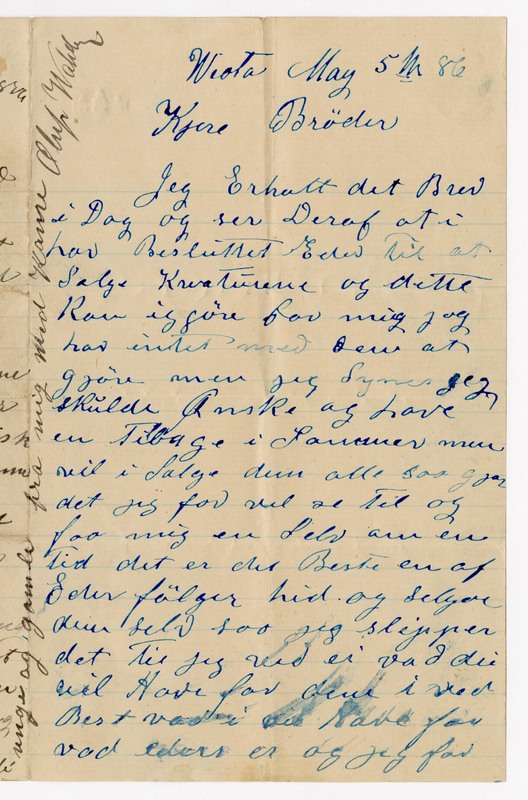 Wiota May 5th 86
Kjere Bröder
Jeg Erholt det Brev
i Dag og ser Deraf at i
har Besluttet Eder til at
Salge Kreaturene og dette
Kan i gjöre for mig jeg
har intet med dem at
gjöre men jeg Synes jeg
skulde Önske og have
en Tibage i Sommer men
vil i Salge dem alle saa gjör
det jeg for vel se til og
faa mig en Selv om en
tid det er det Beste en af
Eder fölger hid og selger
dem selv saa jeg slipper
det til jeg ved ei vad die
vil Have for dem i ved
Best vad i vil Have for
vad eders er og jeg for
unge og gamle fra mig med Hanne Oluf